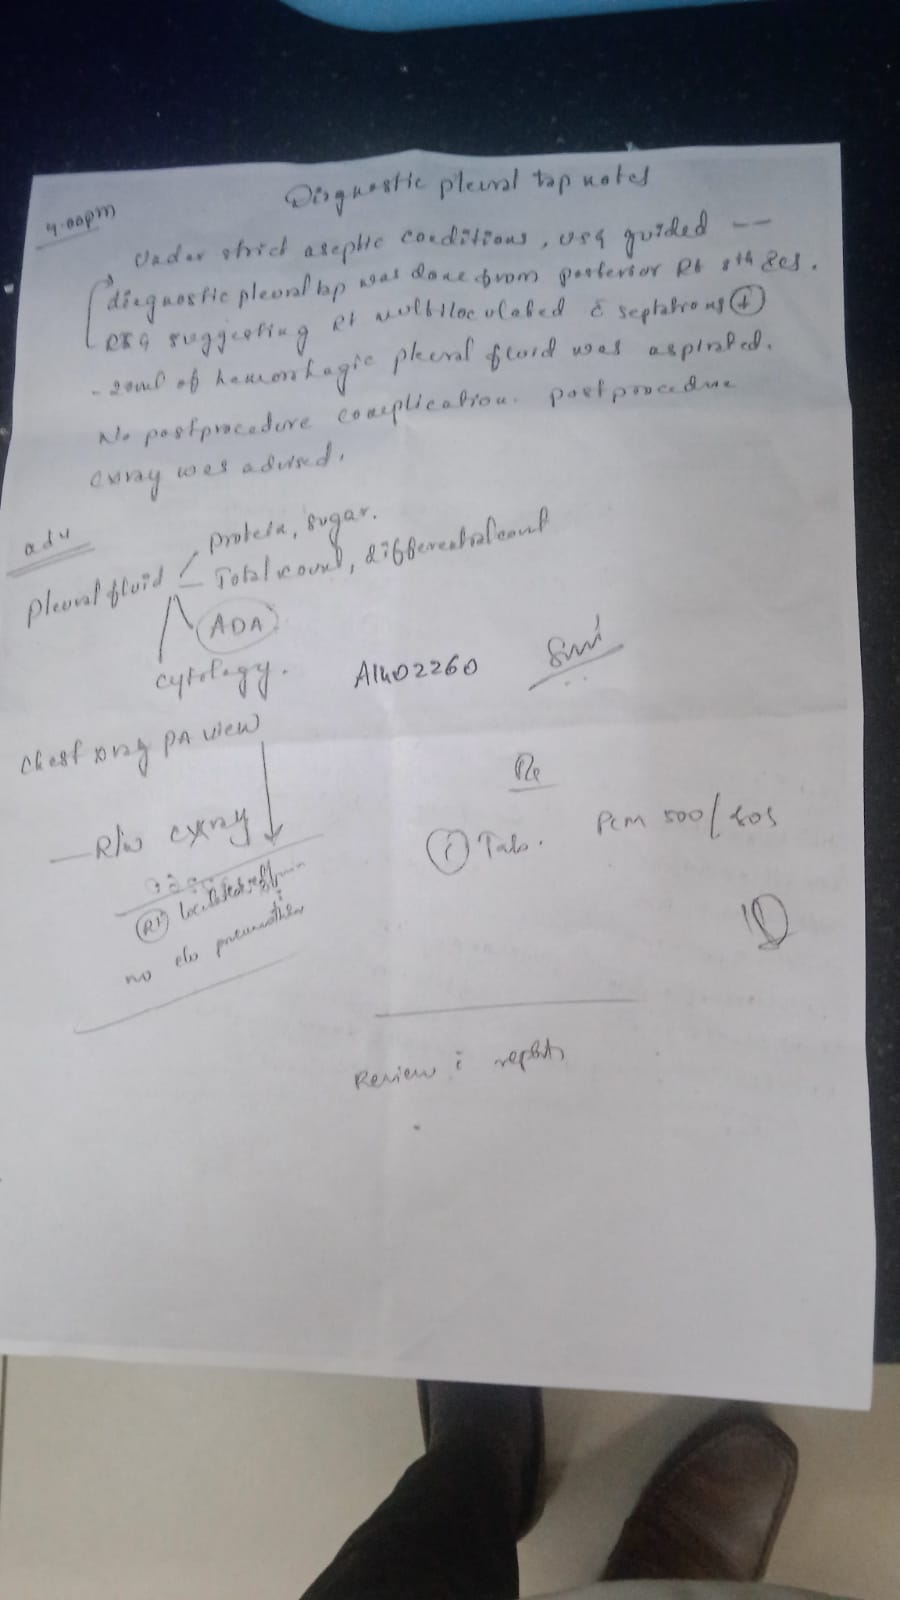 Diagnostic pleural tap notes
4.00pm
Under strict aseptic conditions, USG guided —
diagnostic pleural tap was done from posterior Rt 8th
suggesting Rt multiloculated c septations +
- 20ml of hemorrhagic pleural fluid was aspirated.
No postprocedure complication. post procedure
cxray was advised.
adv
pleural fluid protein, sugar.
Total count, differential count
ADA
cytology.
A1402260
Chest xray PA view
Rx
— R/w cxray
① Tab. PCM 500/SOS
Rt loculated
no e/o
Review c reports